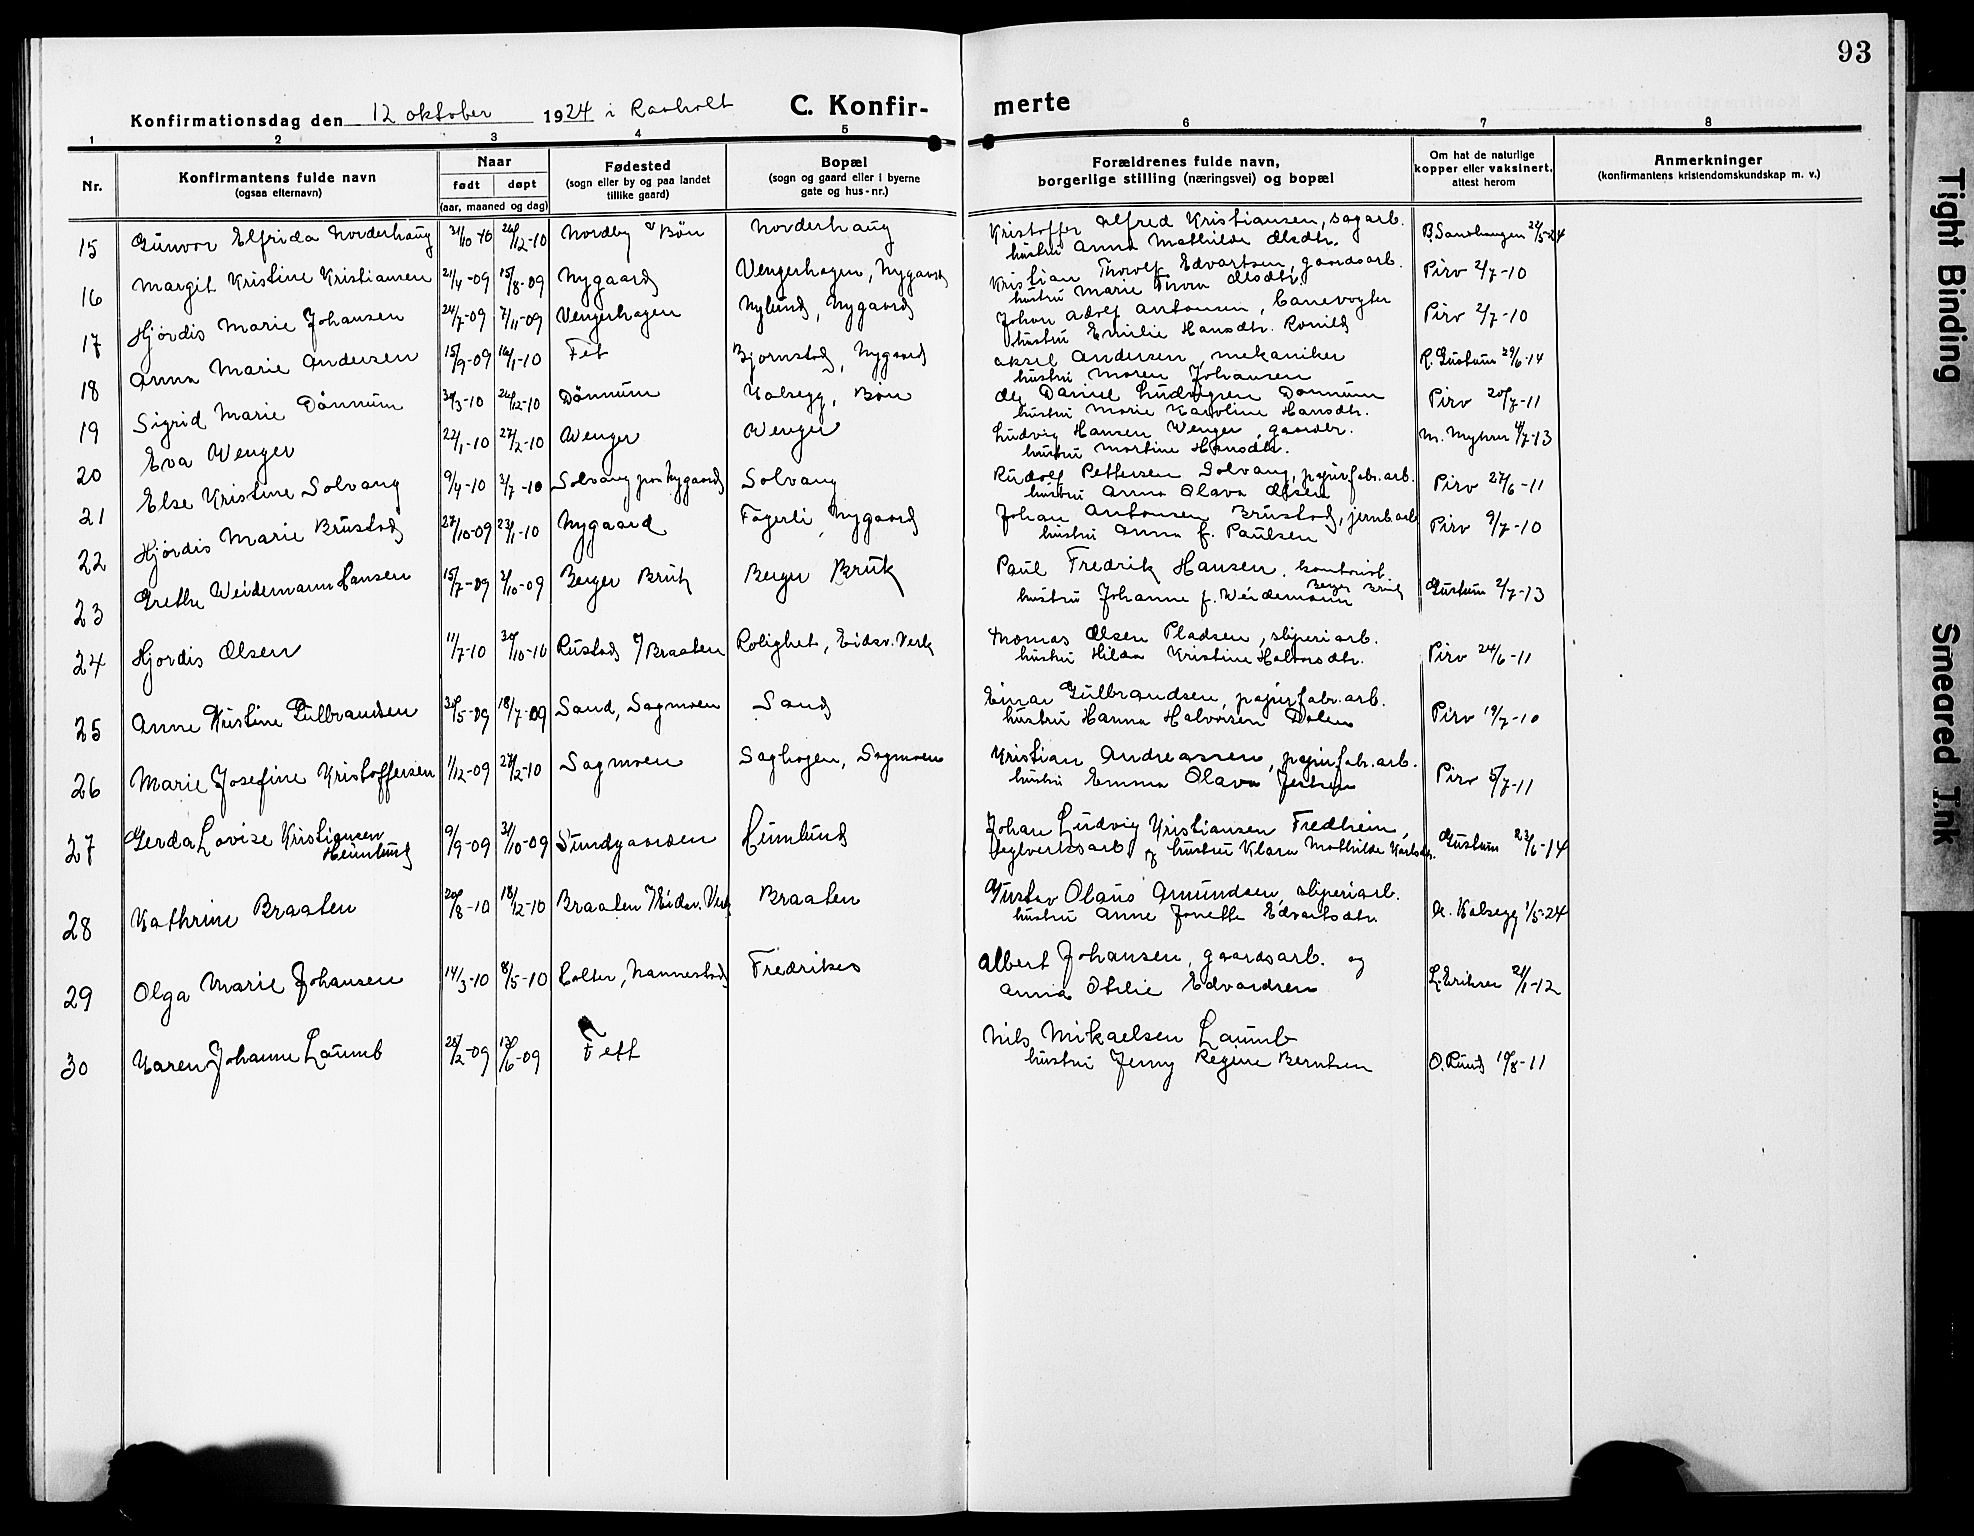 93
Konfirmationsdag den 12 oktober 1924 i Raaholt C. Konfir- merte
1 2 3 4 5 6 7 8
Nr.
Konfirmantens fulde navn
(ogsaa efternavn)
Naar
født døpt
(aar, maaned og dag)
Fødested
(sogn eller by og paa landet
tillike gaard)
Bopæl
(sogn og gaard eller i byerne
gate og hus-nr.)
Forældrenes fulde navn,
borgerlige stilling (næringsvei) og bopæl
Om hat de naturlige
kopper eller vaksinert,
attest herom
Anmerkninger
(konfirmantens kristendomskundskap m. v.)
15 Gunvor Elfrida Norderhaug 31/10-10 26/12-10 Nordby v Bøn Norderhaug Kristoffer Alfred Kristiansen, sagarb. B. Sandhaugen 22/5-24
hustru Anna Mathilde Olsdtr.
16 Margit Kristine Kristiansen 21/4-09 15/8-09 Nygaard Vengerhagen, Nygaard Kristian Thorolf Edvartsen, gaardsarb. Pirv 2/7-10
hustru Marie Thora Olsdtr.
17 Hjørdis Marie Johansen 24/7-09 7/11-09 Vengerhagen Nylund, Nygaard Johan Adolf Antonsen, banevogter Pirv 2/7-10
hustru Emilie Hansdtr. Romild
18 Anna Marie Andersen 15/9-09 16/1-10 Fet Bjørnstad, Nygaard Aksel Andersen, mekaniker R. Gustum 29/6-14
hustru Maren Johansen
19 Sigrid Marie Dønnum 30/3-10 26/12-10 Dønnum Kolsegg, Bøn Ole Daniel Ludvigsen Dønnum Pirv 20/7-11
hustru Marie Karoline Hansdtr.
20 Eva Wenger 22/1-10 27/2-10 Wenger Wenger Ludvig Hansen Wenger, gaardbr. M. Myhrer 4/7-13
hustru Martine Hansdtr.
21 Else Kristine Solvang 9/4-10 3/7-10 Solvang paa Nygaard Solvang Rudolf Pettersen Solvang, papirfabr.arb. Pirv 27/6-11
hustru Anna Olava Olsen
22 Hjørdis Marie Brustad 27/10-09 23/1-10 Nygaard Fagerli, Nygaard Johan Antonsen Brustad, jernb.arb. Pirv 9/7-10
hustru Anna f. Paulsen
23 Grethe Weidemann Hansen 15/7-09 3/10-09 Berger Bruk Berger Bruk Paul Fredrik Hansen, kontorist Gustum 2/7-13
Berger Bruk
hustru Johanne f. Weidemann
24 Hjørdis Olsen 11/7-10 30/10-10 Rustad v/Braaten Rolighet, Eidsv. Verk Thomas Olsen Pladsen, sliperiarb. Pirv 24/6-11
hustru Hilda Kristine Halvorsdtr.
25 Anne Kristine Gulbrandsen 30/5-09 18/7-09 Sand, Sagmoen Sand Einar Gulbrandsen, papirfabr.arb. Pirv 19/7-10
hustru Hanna Halvorsen Dalen
26 Marie Josefine Kristoffersen 1/12-09 27/2-10 Sagmoen Saghagen, Sagmoen Kristian Andreassen, papirfabr.arb. Pirv 5/7-11
hustru Emma Olava Jensen
27 Gerda Lovise Kristiansen 9/9-09 31/10-09 Sundgaarden Heimlund Johan Ludvig Kristiansen Fredheim, Gustum 23/6-14
Heimlund
teglverksarb. og hustru Klara Mathilde Karlsdtr.
28 Kathrine Braaten 20/8-10 18/12-10 Braaten v/Eidsv. Verk Braaten Gustav Olaus Amundsen, sliperiarb. A. Kolsegg 1/5-24
hustru Anne Jonette Edvartsdtr.
29 Olga Marie Johansen 14/3-10 8/5-10 Holter, Nannestad Fredriksro Albert Johansen, gaardsarb. og L. Eriksen 21/1-12
Anna Otelie Edvardsen
30 Karen Johanne Laumb 28/2-09 13/6-09 Fett Nils Mikaelsen Laumb O. Lund 10/8-11
hustru Jenny Regine Berntsen
Tight Binding
Smeared Ink